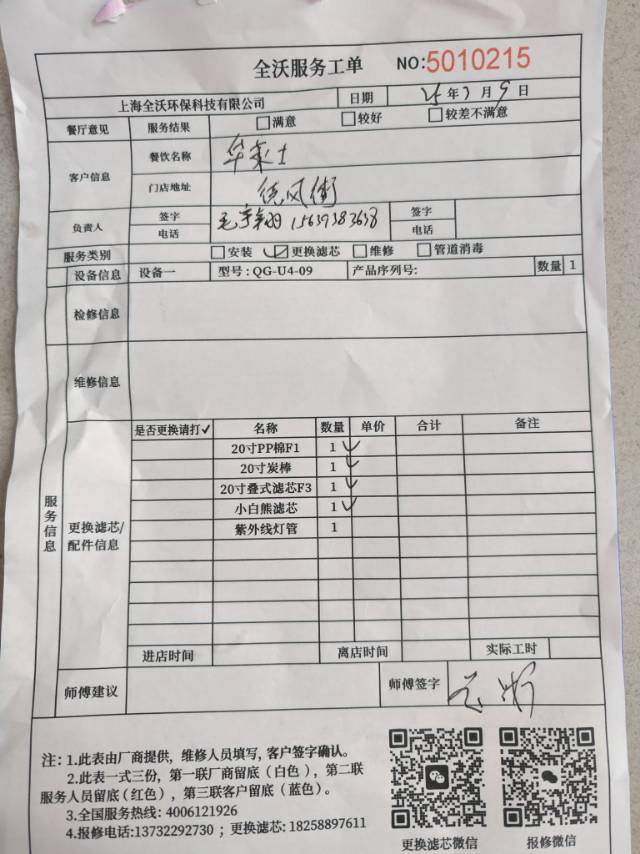 全沃服务工单 NO:5010215
上海全沃环保科技有限公司 日期 25年7月9日
餐厅意见 服务结果 □满意 □较好 □较差不满意
客户信息 餐饮名称 华莱士
门店地址 德风街
负责人 签字 签字
电话 15639383638 电话
服务类别 □安装 ☑更换滤芯 □维修 □管道消毒
设备信息 设备一 型号:QG-U4-09 产品序列号: 数量 1
检修信息
维修信息
服务信息
更换滤芯/配件信息
是否更换请打✓ 名称 数量 单价 合计 备注
20寸PP棉F1 1 ✓
20寸炭棒 1 ✓
20寸叠式滤芯F3 1 ✓
小白熊滤芯 1 ✓
紫外线灯管 1
进店时间 离店时间 实际工时
师傅建议 师傅签字
注: 1.此表由厂商提供, 维修人员填写, 客户签字确认。
2.此表一式三份, 第一联厂商留底(白色), 第二联
服务人员留底(红色), 第三联客户留底(蓝色)。
3.全国服务热线: 4006121926
4.报修电话:13732292730 ; 更换滤芯: 18258897611
更换滤芯微信 报修微信